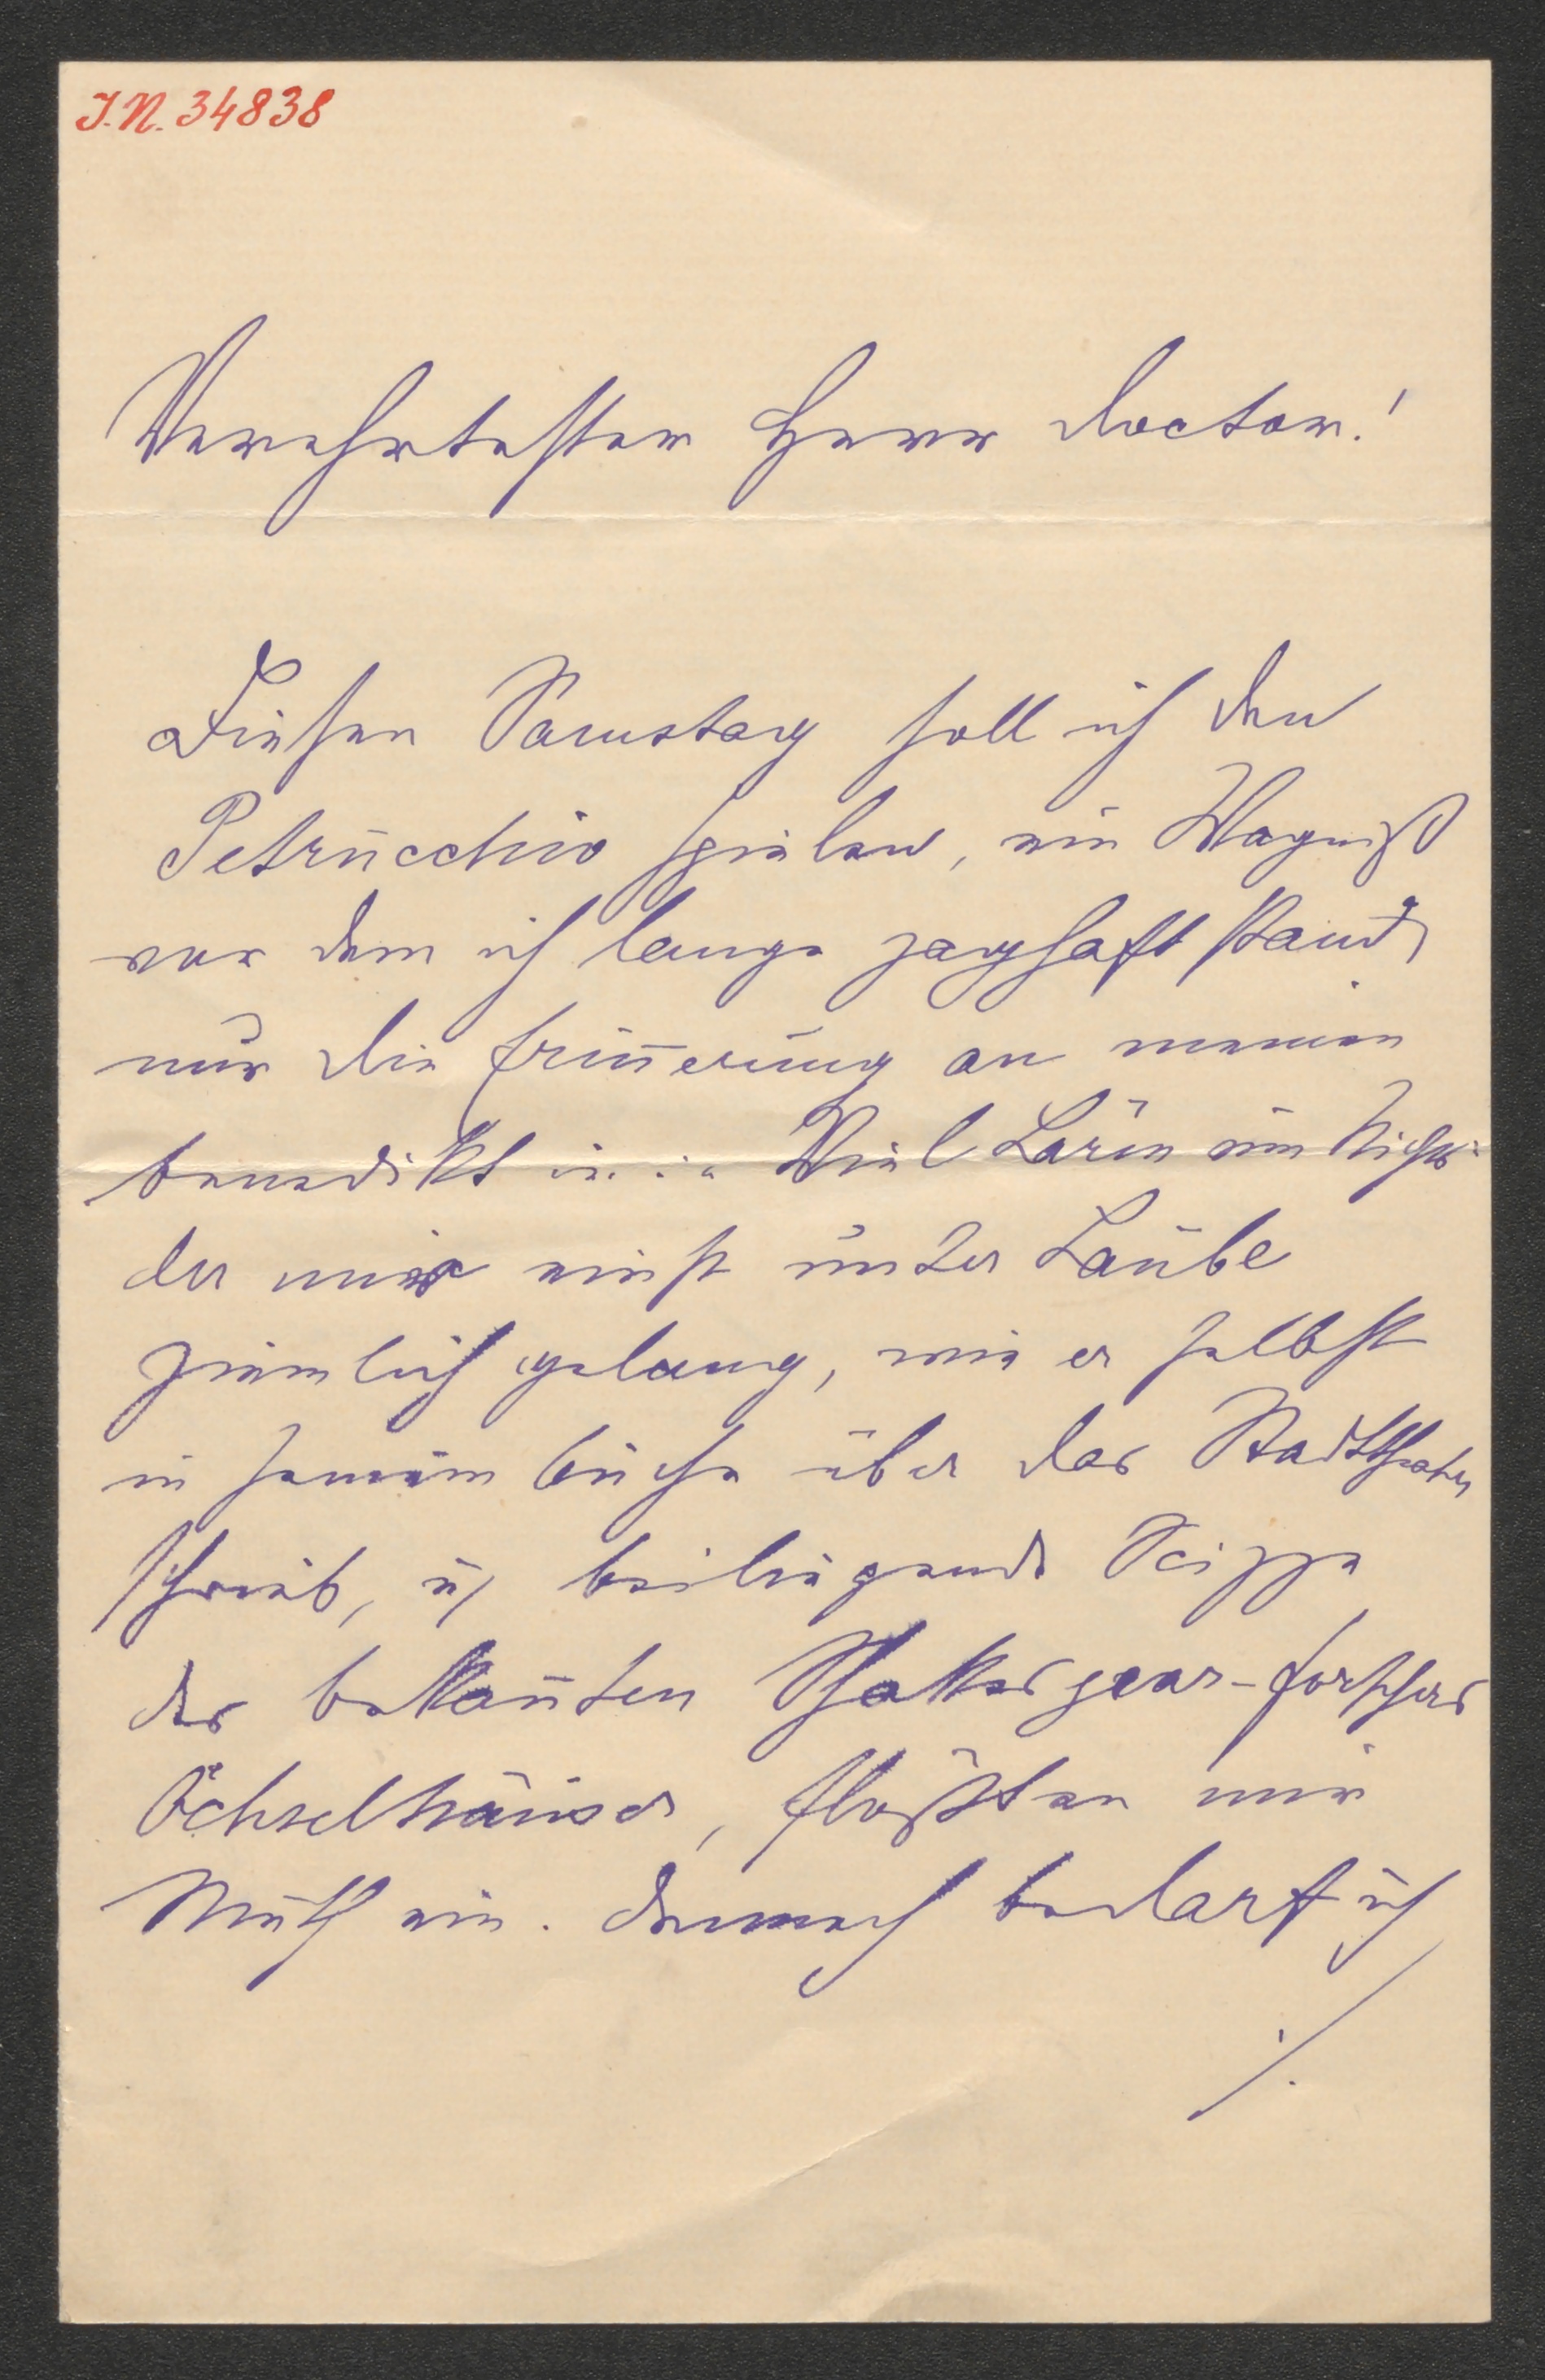 J.N. 34838
Verehrtester Herr Doctor!
Diesen Samstag soll ich den
Petrucchio spielen, ein Wagniß
vor dem ich lange zaghaft stand,
nur die Erin̅erung an meinen
Benedikt in: „Viel Lärm um Nichts"
der mir einst unter Laube
ziemlich gelang, wie er selbst
in seinem Buche über das Stadttheater
schrieb, u. beiliegende Scizze
des bekan̅ten Shakespear-Forschers
Öchselhäuser, flößten mir
Muth ein. Dennoch bedarf ich
./.